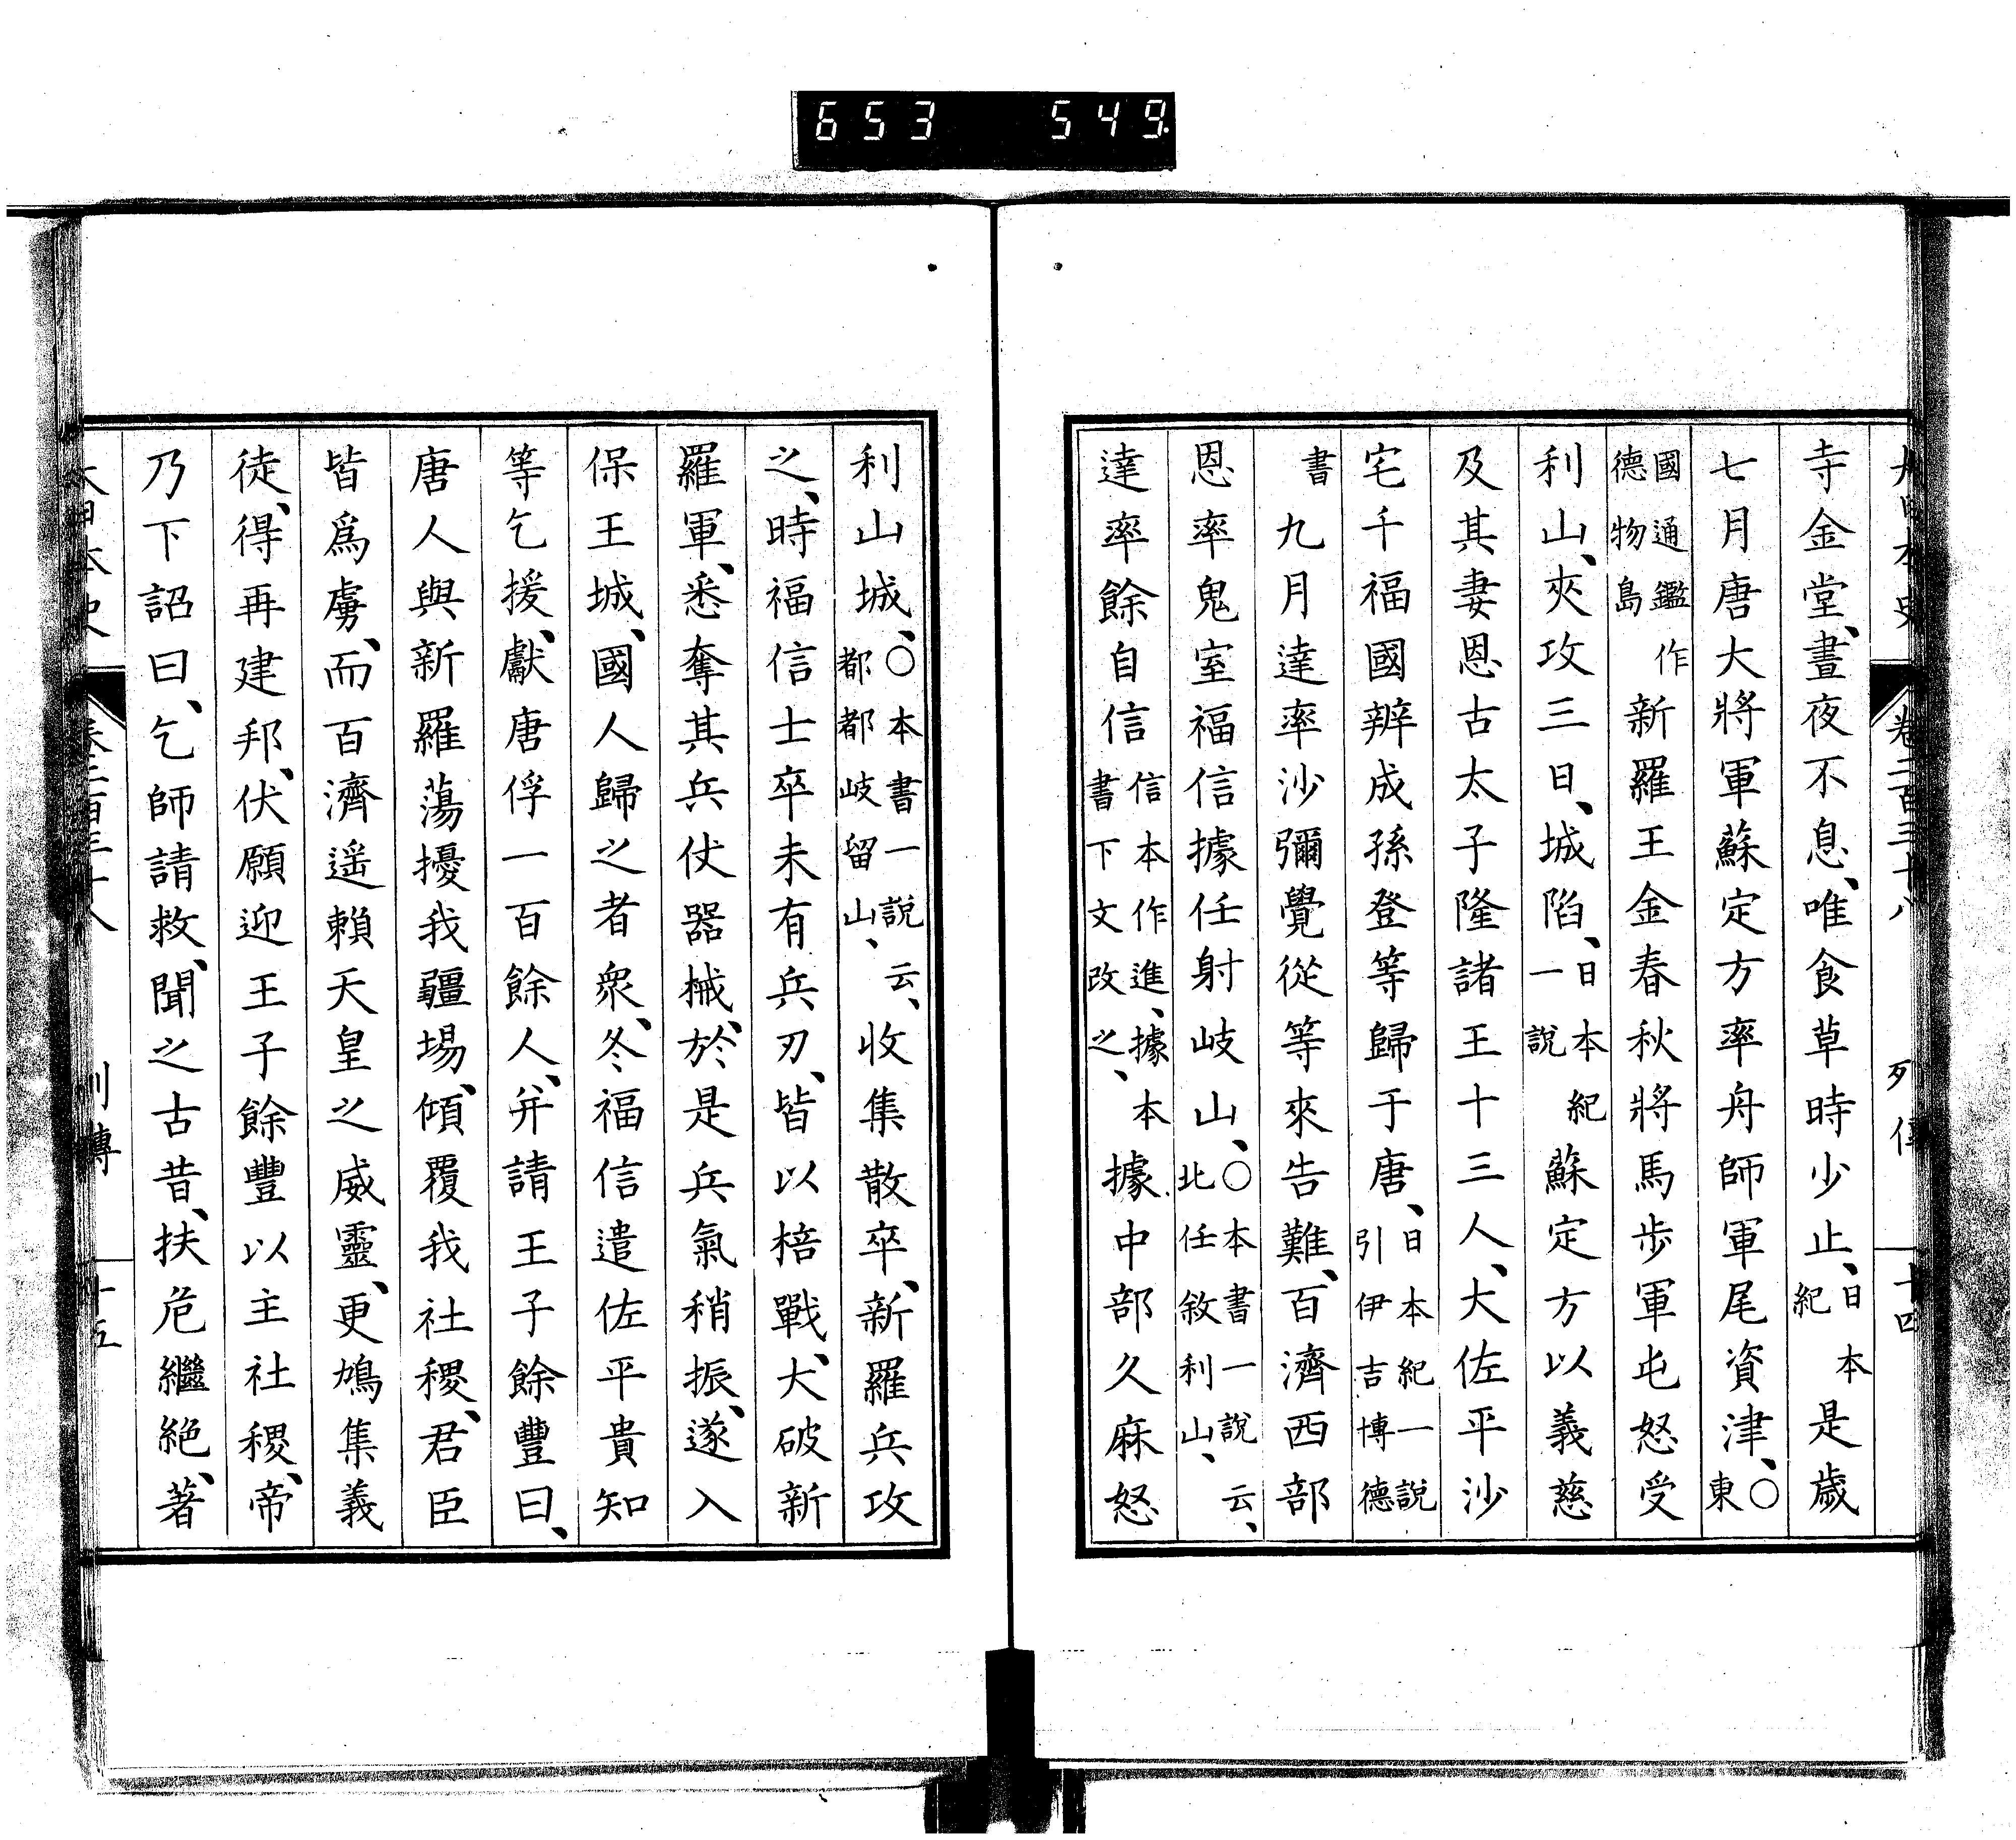 653 549
大日本史 卷二百三十八 列傳 十四
寺金堂、晝夜不息、唯食草時少止、日本紀是歲
七月唐大將軍蘇定方率舟師軍尾資津、○東
國通鑑作德物島新羅王金春秋將馬步軍屯怒受
利山、夾攻三日、城陷、日本紀一說蘇定方以義慈
及其妻恩古太子隆諸王十三人、大佐平沙
宅千福國辨成孫登等歸于唐、日本紀一說引伊吉博德
書九月達率沙彌覺從等來告難、百濟西部
恩率鬼室福信據任射岐山、○本書一說云、北任敘利山、
達率餘自信信本作進、據本書下文改之、據中部久麻怒
利山城、○本書一說云、都都岐留山、收集散卒、新羅兵攻
之、時福信士卒未有兵刃、皆以棓戰、大破新
羅軍、悉奪其兵仗器械、於是兵氣稍振、遂入
保王城、國人歸之者衆、冬、福信遣佐平貴知
等乞援、獻唐俘一百餘人、幷請王子餘豐曰、
唐人與新羅蕩擾我疆場、傾覆我社稷、君臣
皆爲虜、而百濟遥賴天皇之威靈、更鳩集義
徒、得再建邦、伏願迎王子餘豐以主社稷、帝
乃下詔曰、乞師請救、聞之古昔、扶危繼絕、著
大日本史 卷二百三十八 列傳 十五